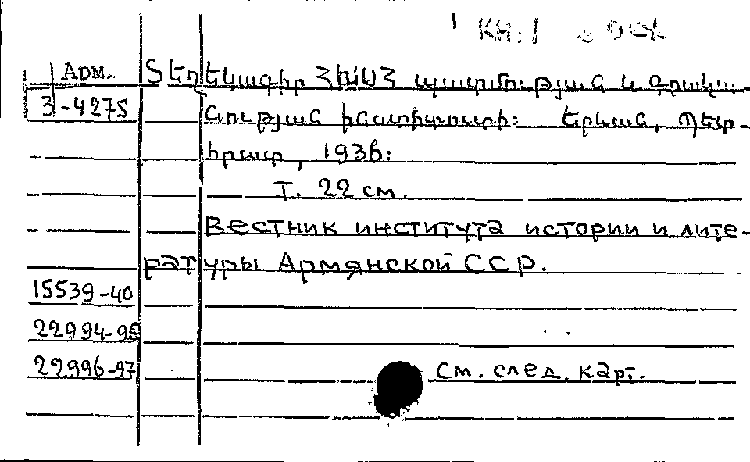 Кн. 1
Арм. Տեղեկագիր ՀԽՍՀ պատմության և գրակա-
3-4275 նության ինստիտուտի: Երևան, Պետ-
հրատ, 1936:
Т. 22 см.
Вестник института истории и лите-
ратуры Армянской ССР.
15539-40
22994-95
22996-97 См. след. карт.